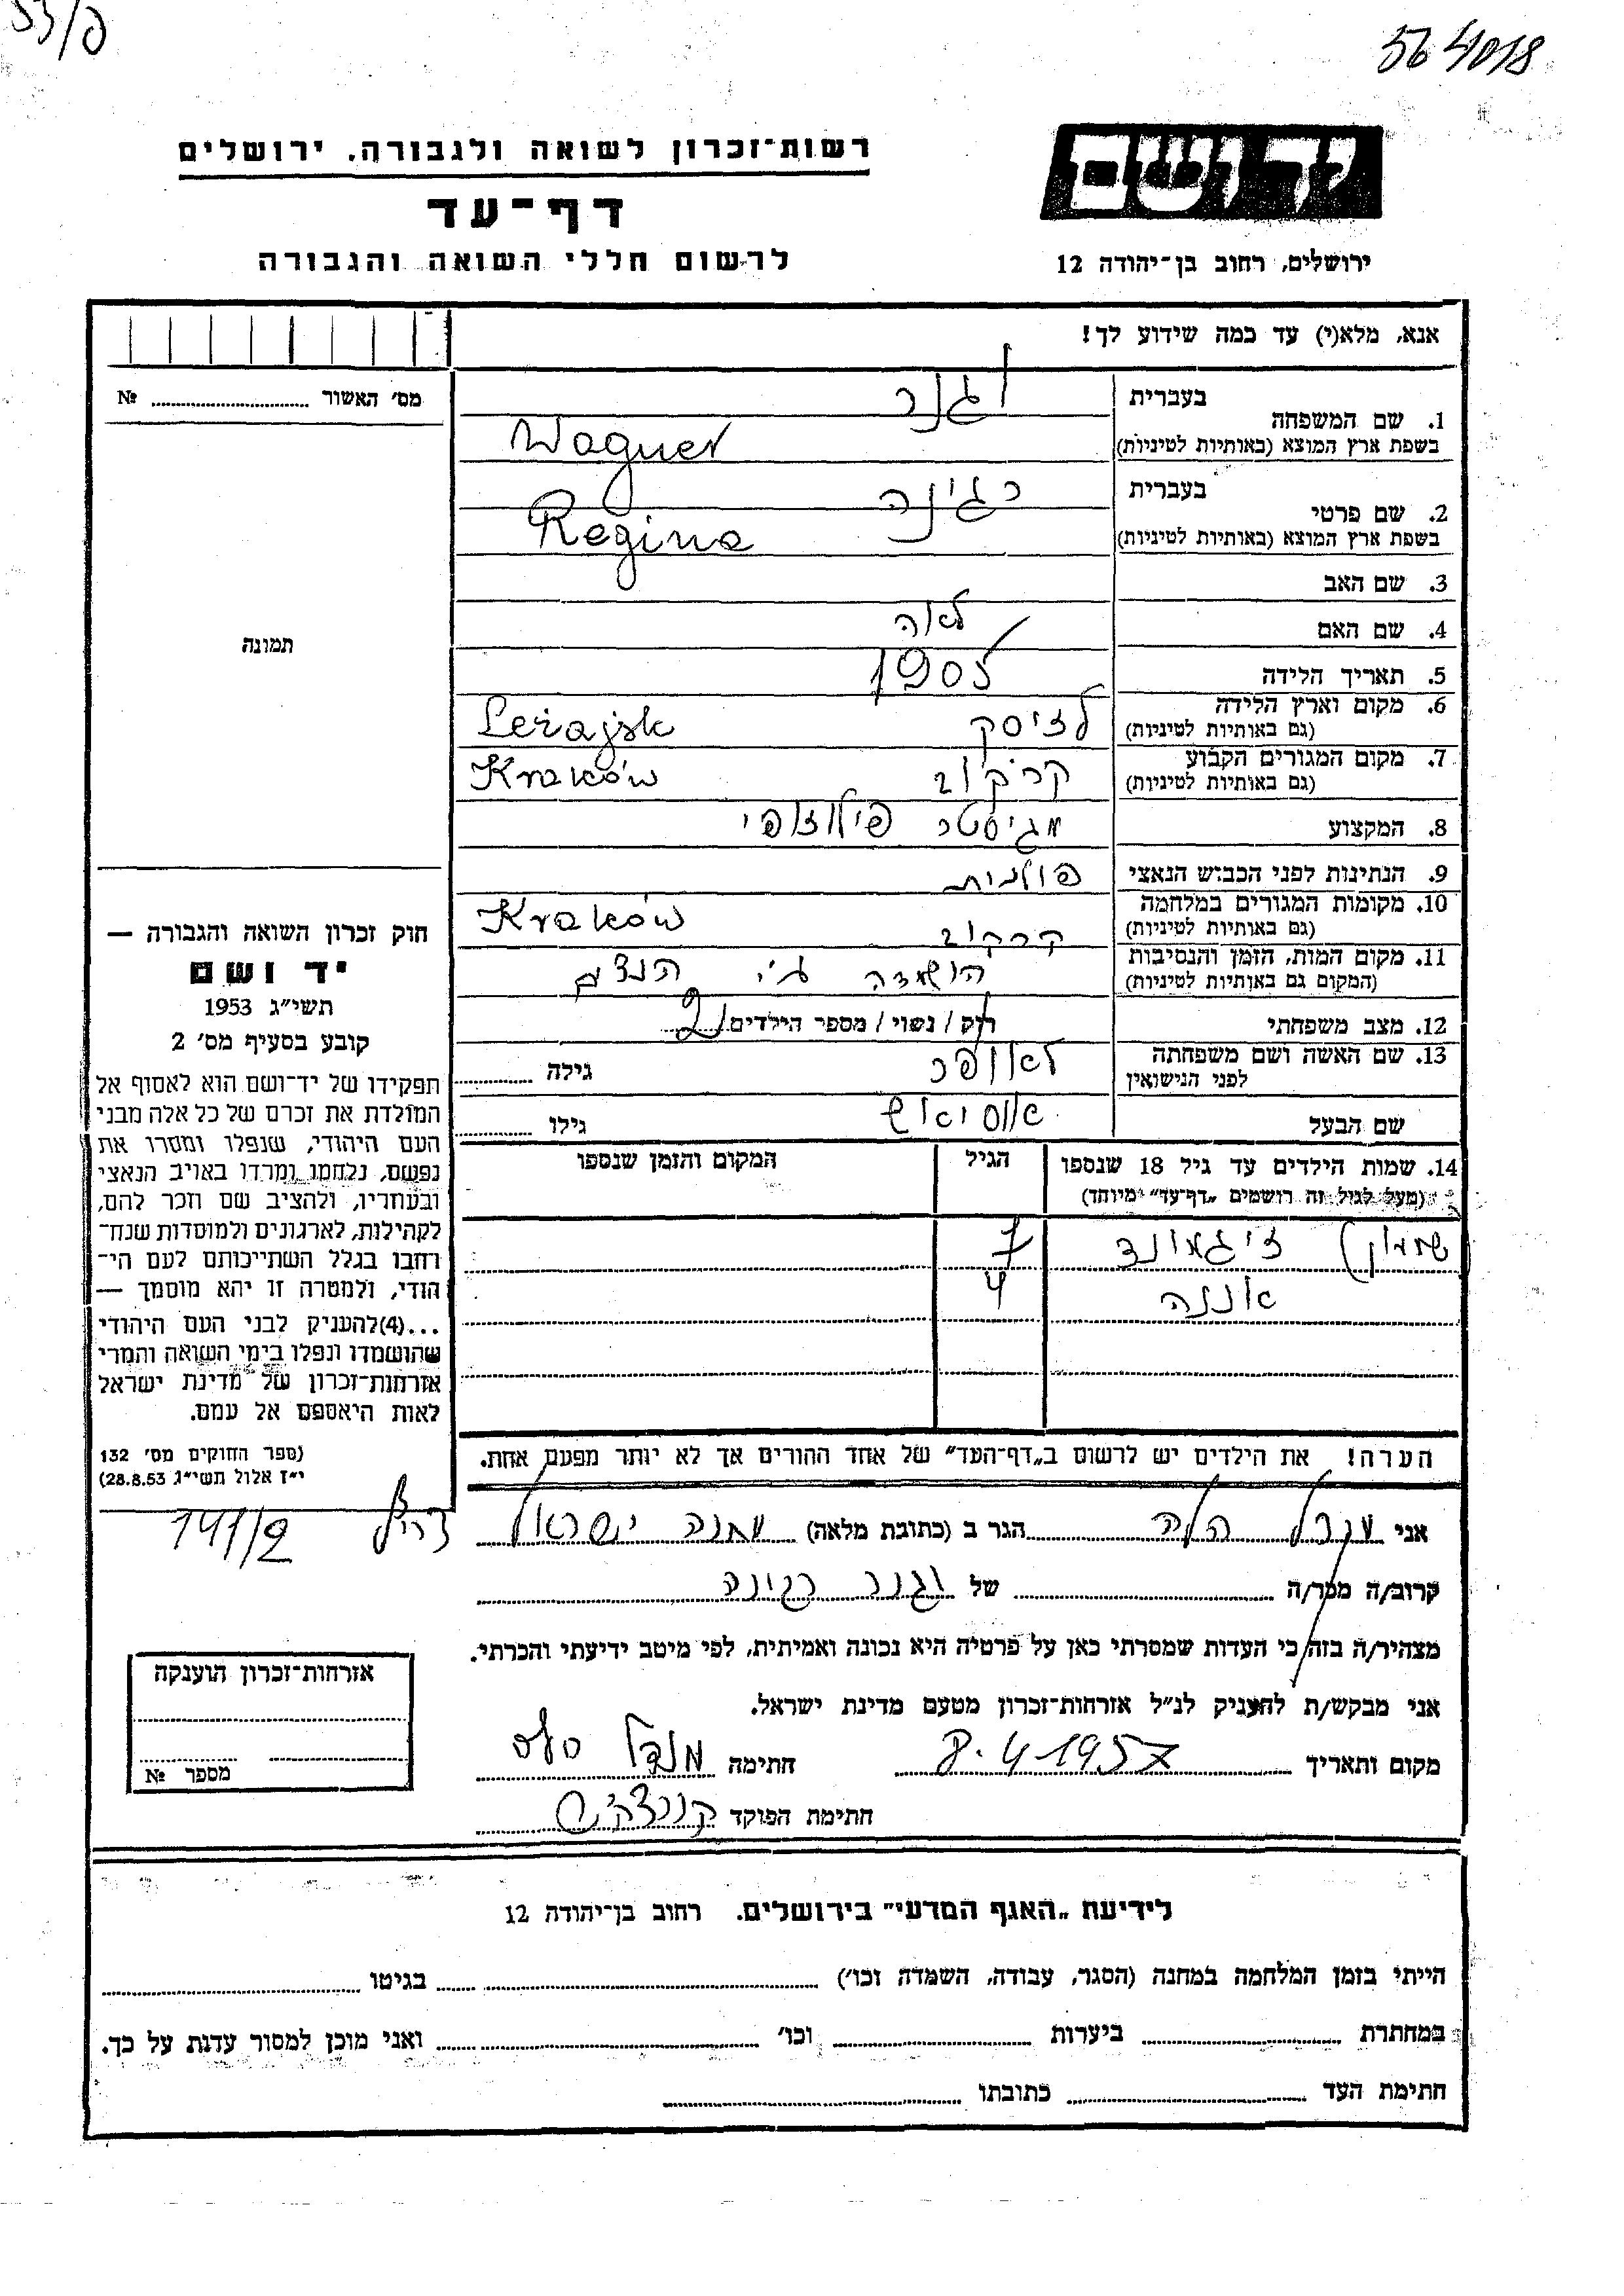 53/פ
564018
רשות-זכרון לשואה ולגבורה, ירושלים
ידושם
דף-עד
לרשום חללי השואה והגבורה
ירושלים, רחוב בן-יהודה 12
אנא, מלא(י) עד כמה שידוע לך!
מס' האשור № 
1. שם המשפחה בעברית וגנר
בשפת ארץ המוצא (באותיות לטיניות) Wagner
2. שם פרטי בעברית רגינה
בשפת ארץ המוצא (באותיות לטיניות) Regina
3. שם האב
4. שם האם לאה
5. תאריך הלידה 1905
6. מקום וארץ הלידה (גם באותיות לטיניות) לזיסק Leżajsk
7. מקום המגורים הקבוע (גם באותיות לטיניות) קרקוב Kraków
8. המקצוע מגיסטר פילוזופי
9. הנתינות לפני הכבוש הנאצי פולנית
10. מקומות המגורים במלחמה (גם באותיות לטיניות) קרקוב Kraków
11. מקום המות, הזמן והנסיבות (המקום גם באותיות לטיניות) הושמדה ע"י הנצים
12. מצב משפחתי רוק / נשוי / מספר הילדים 2
13. שם האשה ושם משפחתה לפני הנישואין לאופר גילה
שם הבעל גילו
14. שמות הילדים עד גיל 18 שנספו
(מעל לגיל זה רושמים "דף-עד" מיוחד)
הגיל
המקום והזמן שנספו
(שמעון) זיגמונד 7
אננה 4
הערה! את הילדים יש לרשום ב"דף-העד" של אחד ההורים אך לא יותר מפעם אחת.
תמונה
חוק זכרון השואה והגבורה —
יד ושם
תשי"ג 1953
קובע בסעיף מס' 2
תפקידו של יד-ושם הוא לאסוף אל
המולדת את זכרם של כל אלה מבני
העם היהודי, שנפלו ומסרו את
נפשם, נלחמו ומרדו באויב הנאצי
ובעוזריו, ולהציב שם וזכר להם,
לקהילות, לארגונים ולמוסדות שנח־
רבו בגלל השתייכותם לעם הי־
הודי, ולמטרה זו יהא מוסמך —
...(4)להעניק לבני העם היהודי
שהושמדו ונפלו בימי השואה והמרי
אזרחות-זכרון של מדינת ישראל
לאות היאספם אל עמם.
(ספר החוקים מס' 132
י"ז אלול תשי"ג 28.8.53)
אני הלה הגר ב (כתובת מלאה) מחנה ישראל 141/2
קרוב/ה מכר/ה של וגנר רגינה
מצהיר/ה בזה כי העדות שמסרתי כאן על פרטיה היא נכונה ואמיתית, לפי מיטב ידיעתי והכרתי.
אני מבקש/ת להעניק לנ"ל אזרחות-זכרון מטעם מדינת ישראל.
מקום ותאריך 8.4.1957 חתימה
חתימת הפוקד
אזרחות-זכרון הוענקה
מספר №
לידיעת "האגף המדעי" בירושלים. רחוב בן-יהודה 12
הייתי בזמן המלחמה במחנה (הסגר, עבודה, השמדה וכו') בגיטו
במחתרת ביערות וכו' ואני מוכן למסור עדות על כך.
חתימת העד כתובתו